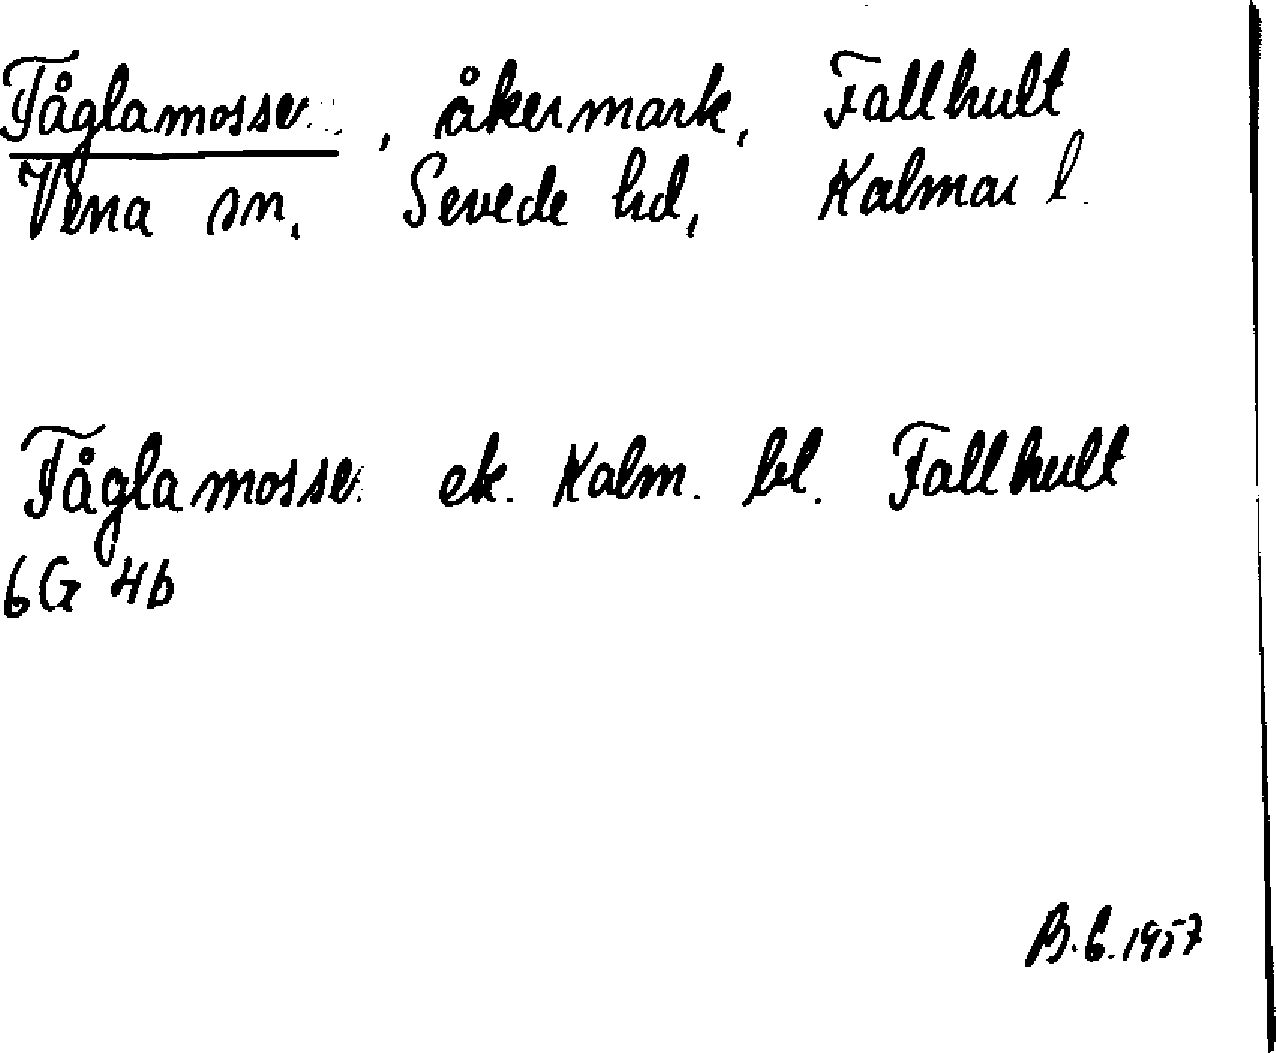 Fåglamosse, åkermark, Fallhult
Vena sn. Sevede hd, Kalmar l.
Fåglamosse ek. Kalm. bl. Fallhult
6G 4b
B.G. 1957